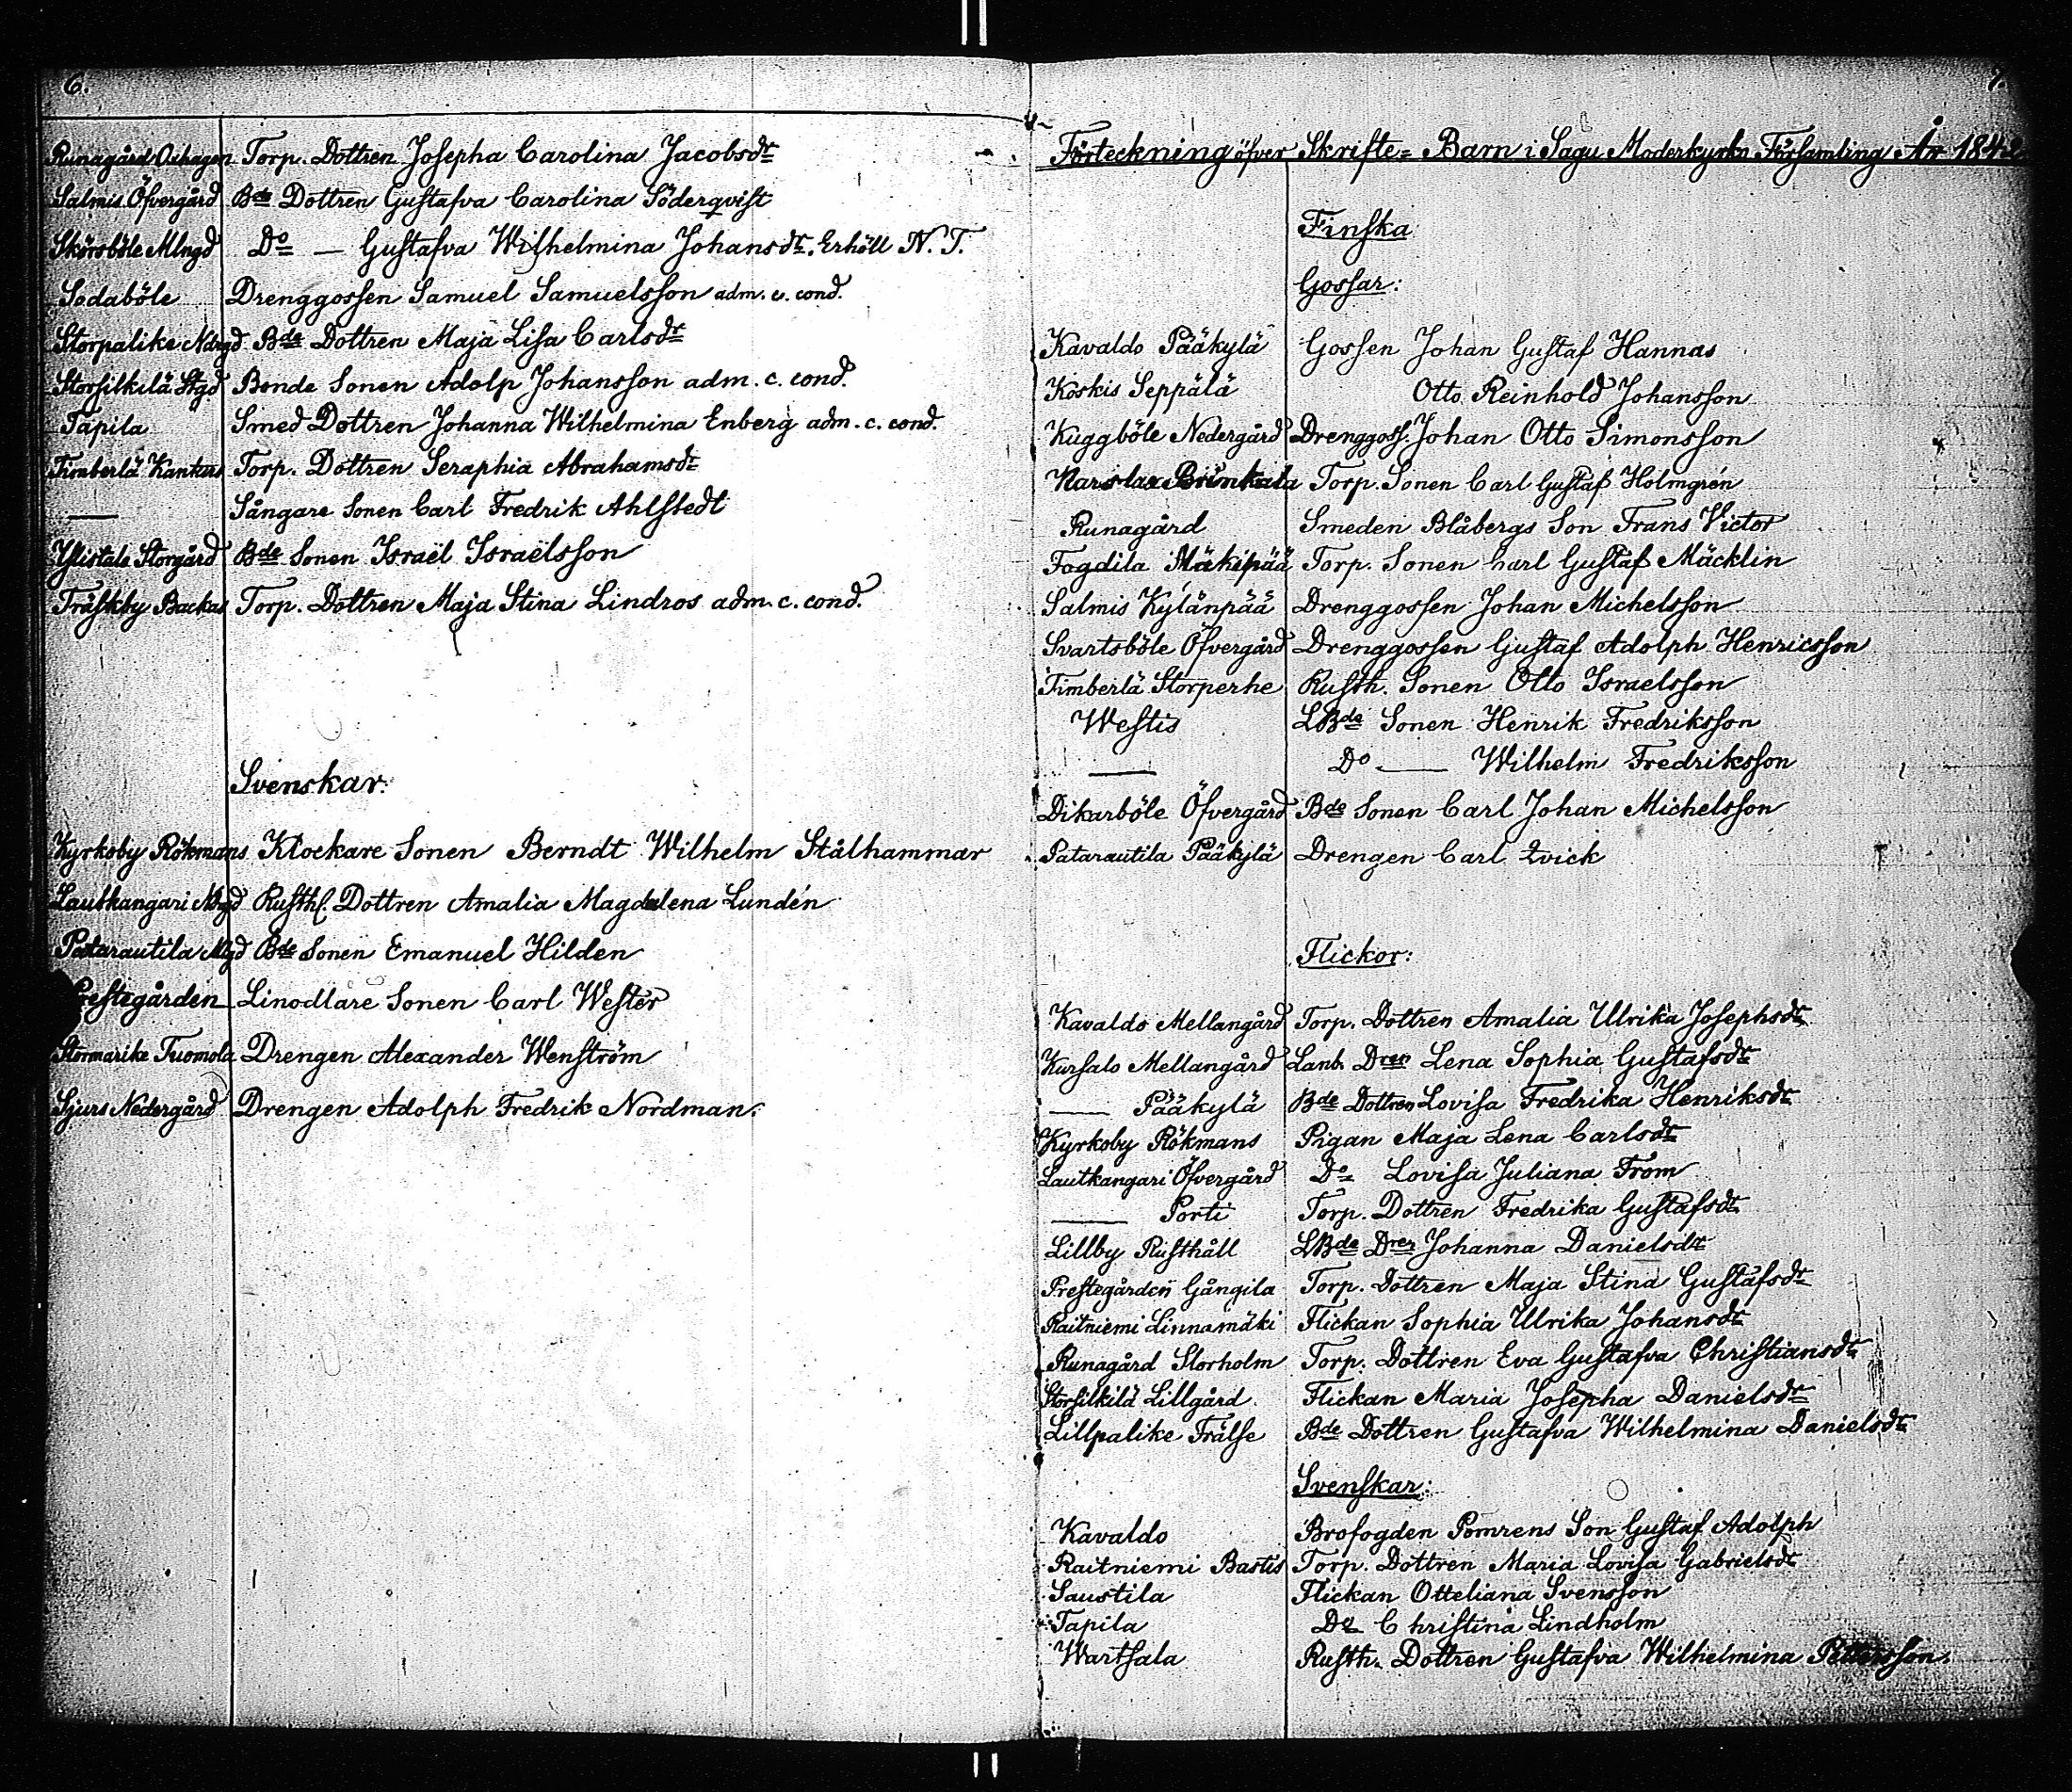 6.
Runagård Oxhagen Torp. Dottren Josepha Carolina Jacobsdr
Salmis Öfvergård Bde Dottren Gustafva Carolina Söderqvist
Skörsböle Mlngd Do — Gustafva Wilhelmina Johansdr. Erhöll N. T.
Sodaböle Drenggossen Samuel Samuelsson adm. c. cond.
Storpalike Ndrgd Bde Dottren Maja Lisa Carlsdr
Storsilkilä Stgd Bonde Sonen Adolp Johansson adm. c. cond.
Tapila Smed Dottren Johanna Wilhelmina Enberg adm. c. cond.
Timberlä Kankars Torp. Dottren Seraphia Abrahamsdr
— Sångare Sonen Carl Fredrik Ahlstedt
Ylistalo Storgård Bde Sonen Israël Israëlsson
Träskby Backas Torp. Dottren Maja Stina Lindros adm. c. cond.
Svenskar:
Kyrkoby Rökmans Klockare Sonen Berndt Wilhelm Stålhammar
Lautkangari Ndrgd Rusth. Dottren Amalia Magdalena Lundén
Patarautila Mgd Bde Sonen Emanuel Hilden
Prestegården Linodlare Sonen Carl Wester
Stormarike Tuomola Drengen Alexander Wenström
Sjurs Nedergård Drengen Adolph Fredrik Nordman.
7.
Förteckning öfver Skrifte= Barn i Sagu Moderkyrko Församling År 1842.
Finska
Gossar:
Kavaldo Pääkylä Gossen Johan Gustaf Hannas
Koskis Seppälä Otto Reinhold Johansson
Kuggböle Nedergård Drenggoss. Johan Otto Simonsson
Karslax Brinkala Torp. Sonen Carl Gustaf Holmgrén
Runagård Smeden Blåbergs Son Frans Victor
Fogdila Mäkipää Torp. Sonen Carl Gustaf Mäcklin
Salmis Kylänpää Drenggossen Johan Michelsson
Svartsböle Öfvergård Drenggossen Gustaf Adolph Henricsson
Timberlä Storperhe Rusth. Sonen Otto Israelsson
Westis LBde Sonen Henrik Fredriksson
— Do — Wilhelm Fredriksson
Dikarböle Öfvergård Bde Sonen Carl Johan Michelsson
Patarautila Pääkylä Drengen Carl Qvick
Flickor:
Kavaldo Mellangård Torp. Dottren Amalia Ulrika Josephsdr
Kursalo Mellangård Lanb. Dren Lena Sophia Gustafsdr
— Pääkylä Bde Dottren Lovisa Fredrika Henriksdr
Kyrkoby Rökmans Pigan Maja Lena Carlsdr
Lautkangari Öfvergård Do Lovisa Juliana From
— Porti Torp. Dottren Fredrika Gustafsdr
Lillby Rusthåll LBde Dren Johanna Danielsdr
Prestegården Gångila Torp. Dottren Maja Stina Gustafsdr
Raitniemi Linnamäki Flickan Sophia Ulrika Johansdr
Runagård Storholm Torp. Dottren Eva Gustafva Christiansdr
Storsilkilä Lillgård Flickan Maria Josepha Danielsdr
Lillpalike Frälse Bde Dottren Gustafva Wilhelmina Danielsdr
Svenskar:
Kavaldo Brofogden Pomrens Son Gustaf Adolph
Raitniemi Bastis Torp. Dottren Maria Lovisa Gabrielsdr
Saustila Flickan Otteliana Svensson
Tapila Do Christina Lindholm
Wartsala Rusth. Dottren Gustafva Wilhelmina Pettersson.